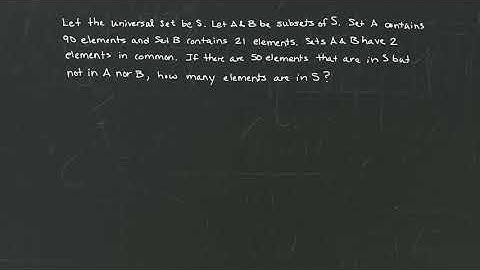 Let the universal set be S. Let A & B be subsets of S. Set A contains
90 elements and Set B contains 21 elements. Sets A & B have 2
elements in common. If there are 50 elements that are in S but
not in A nor B, how many elements are in S?